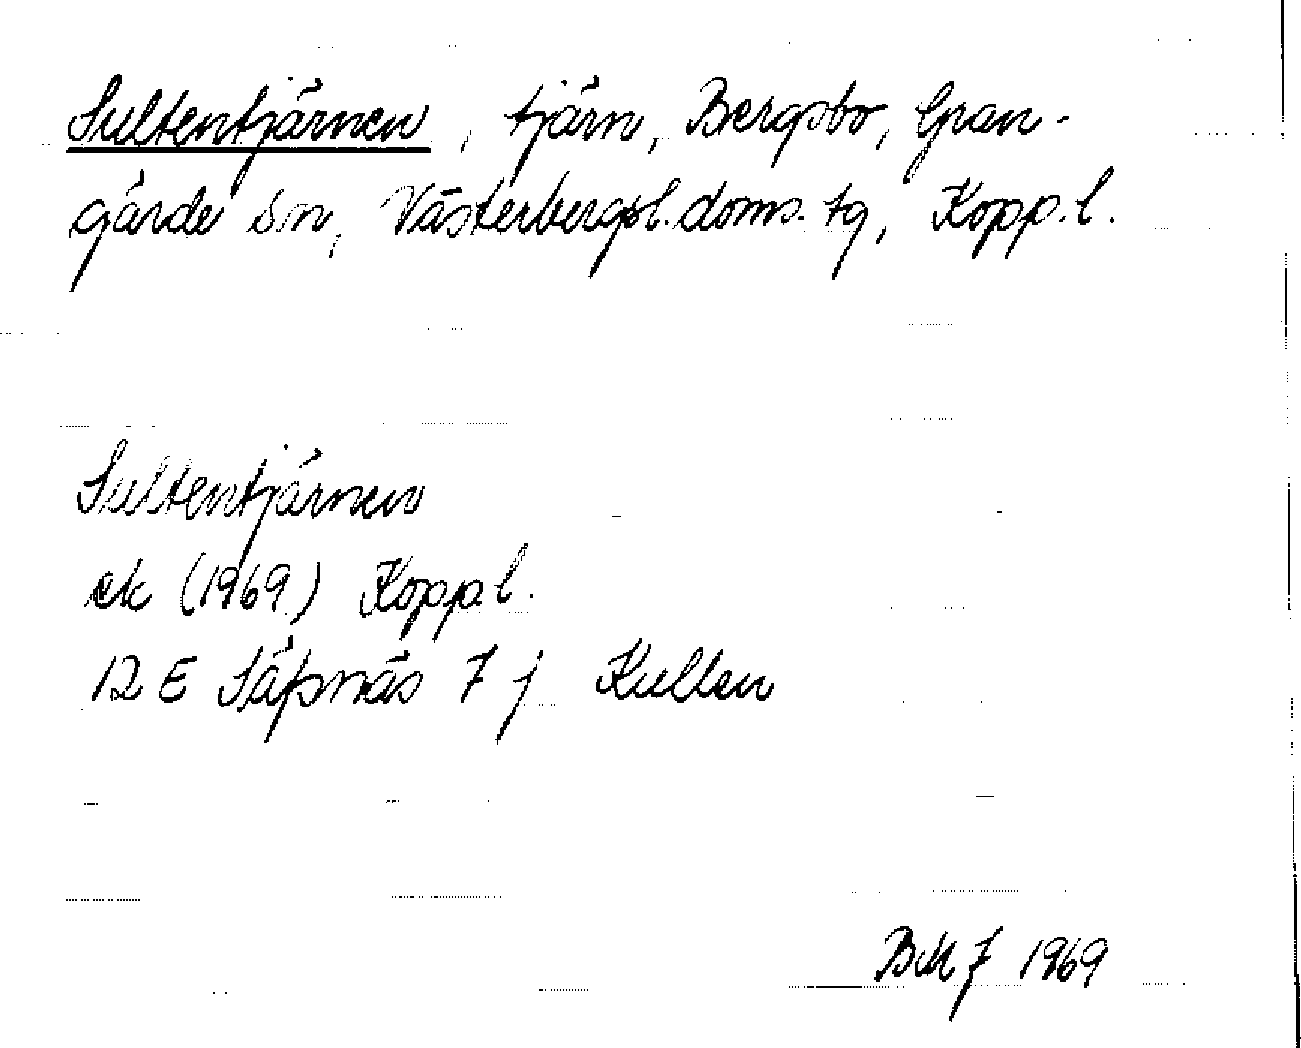 Sultentjärnen, tjärn, Bergsbo, Gran-
gärde sn, Västerbergsl. doms. tg, Kopp. l.
Sultentjärnen
ek (1969) Kopp. l.
12 E Säfsnäs 7 j Kullen
1969